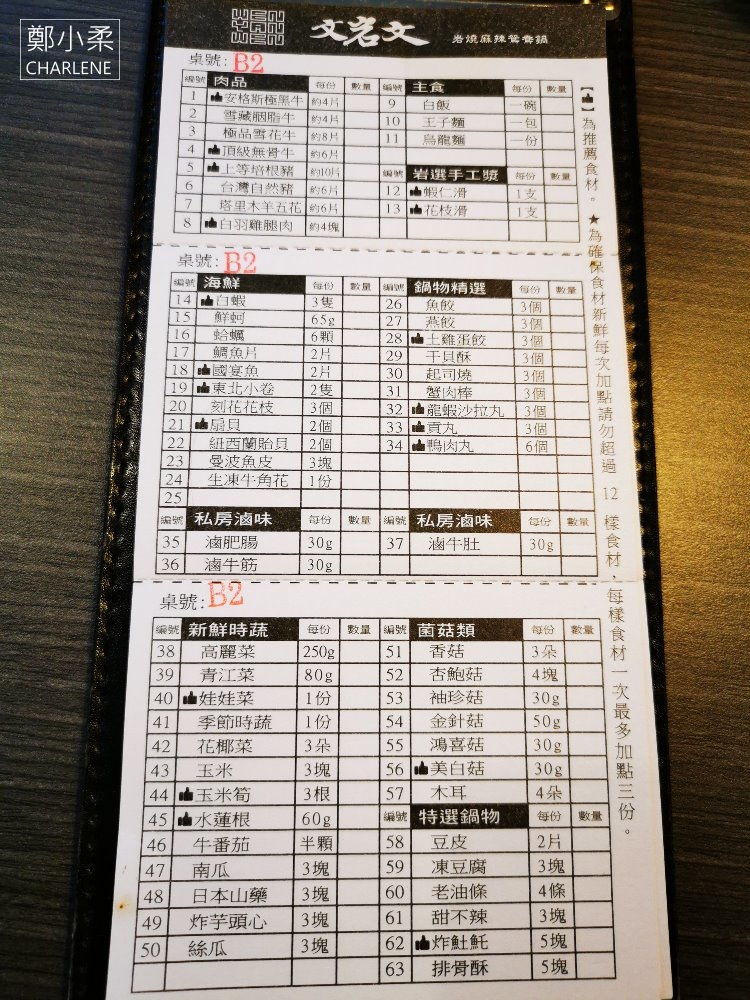 鄭小柔
CHARLENE
文岩文 岩燒麻辣鴛鴦鍋
桌號: B2
編號 肉品 每份 數量 編號 主食 每份 數量
1 安格斯極黑牛 約4片 9 白飯 一碗
2 雪藏胭脂牛 約4片 10 王子麵 一包
3 極品雪花牛 約8片 11 烏龍麵 一份
4 頂級無骨牛 約6片
5 上等培根豬 約10片 編號 岩選手工漿 每份 數量
6 台灣自然豬 約6片 12 蝦仁滑 1支
7 塔里木羊五花 約6片 13 花枝滑 1支
8 白羽雞腿肉 約4塊
桌號: B2
編號 海鮮 每份 數量 編號 鍋物精選 每份 數量
14 白蝦 3隻 26 魚餃 3個
15 鮮蚵 65g 27 燕餃 3個
16 蛤蠣 6顆 28 土雞蛋餃 3個
17 鯛魚片 2片 29 干貝酥 3個
18 國宴魚 2片 30 起司燒 3個
19 東北小卷 2隻 31 蟹肉棒 3個
20 刻花花枝 3個 32 龍蝦沙拉丸 3個
21 扇貝 2個 33 貢丸 3個
22 紐西蘭貽貝 2個 34 鴨肉丸 6個
23 曼波魚皮 3塊
24 生凍牛角花 1份
25
編號 私房滷味 每份 數量 編號 私房滷味 每份 數量
35 滷肥腸 30g 37 滷牛肚 30g
36 滷牛筋 30g
桌號: B2
編號 新鮮時蔬 每份 數量 編號 菌菇類 每份 數量
38 高麗菜 250g 51 香菇 3朵
39 青江菜 80g 52 杏鮑菇 4塊
40 娃娃菜 1份 53 袖珍菇 30g
41 季節時蔬 1份 54 金針菇 50g
42 花椰菜 3朵 55 鴻喜菇 30g
43 玉米 3塊 56 美白菇 30g
44 玉米筍 3根 57 木耳 4朵
45 水蓮根 60g 編號 特選鍋物 每份 數量
46 牛番茄 半顆 58 豆皮 2片
47 南瓜 3塊 59 凍豆腐 3塊
48 日本山藥 3塊 60 老油條 4條
49 炸芋頭心 3塊 61 甜不辣 3塊
50 絲瓜 3塊 62 炸魠魠 5塊
63 排骨酥 5塊
【👍】為推薦食材。★為確保食材新鮮每次加點請勿超過 12 樣食材，每樣食材一次最多加點三份。